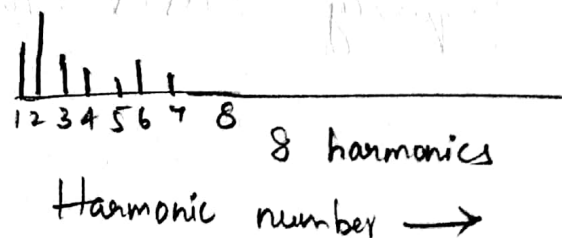 1 2 3 4 5 6 7 8
8 harmonics
Harmonic number →